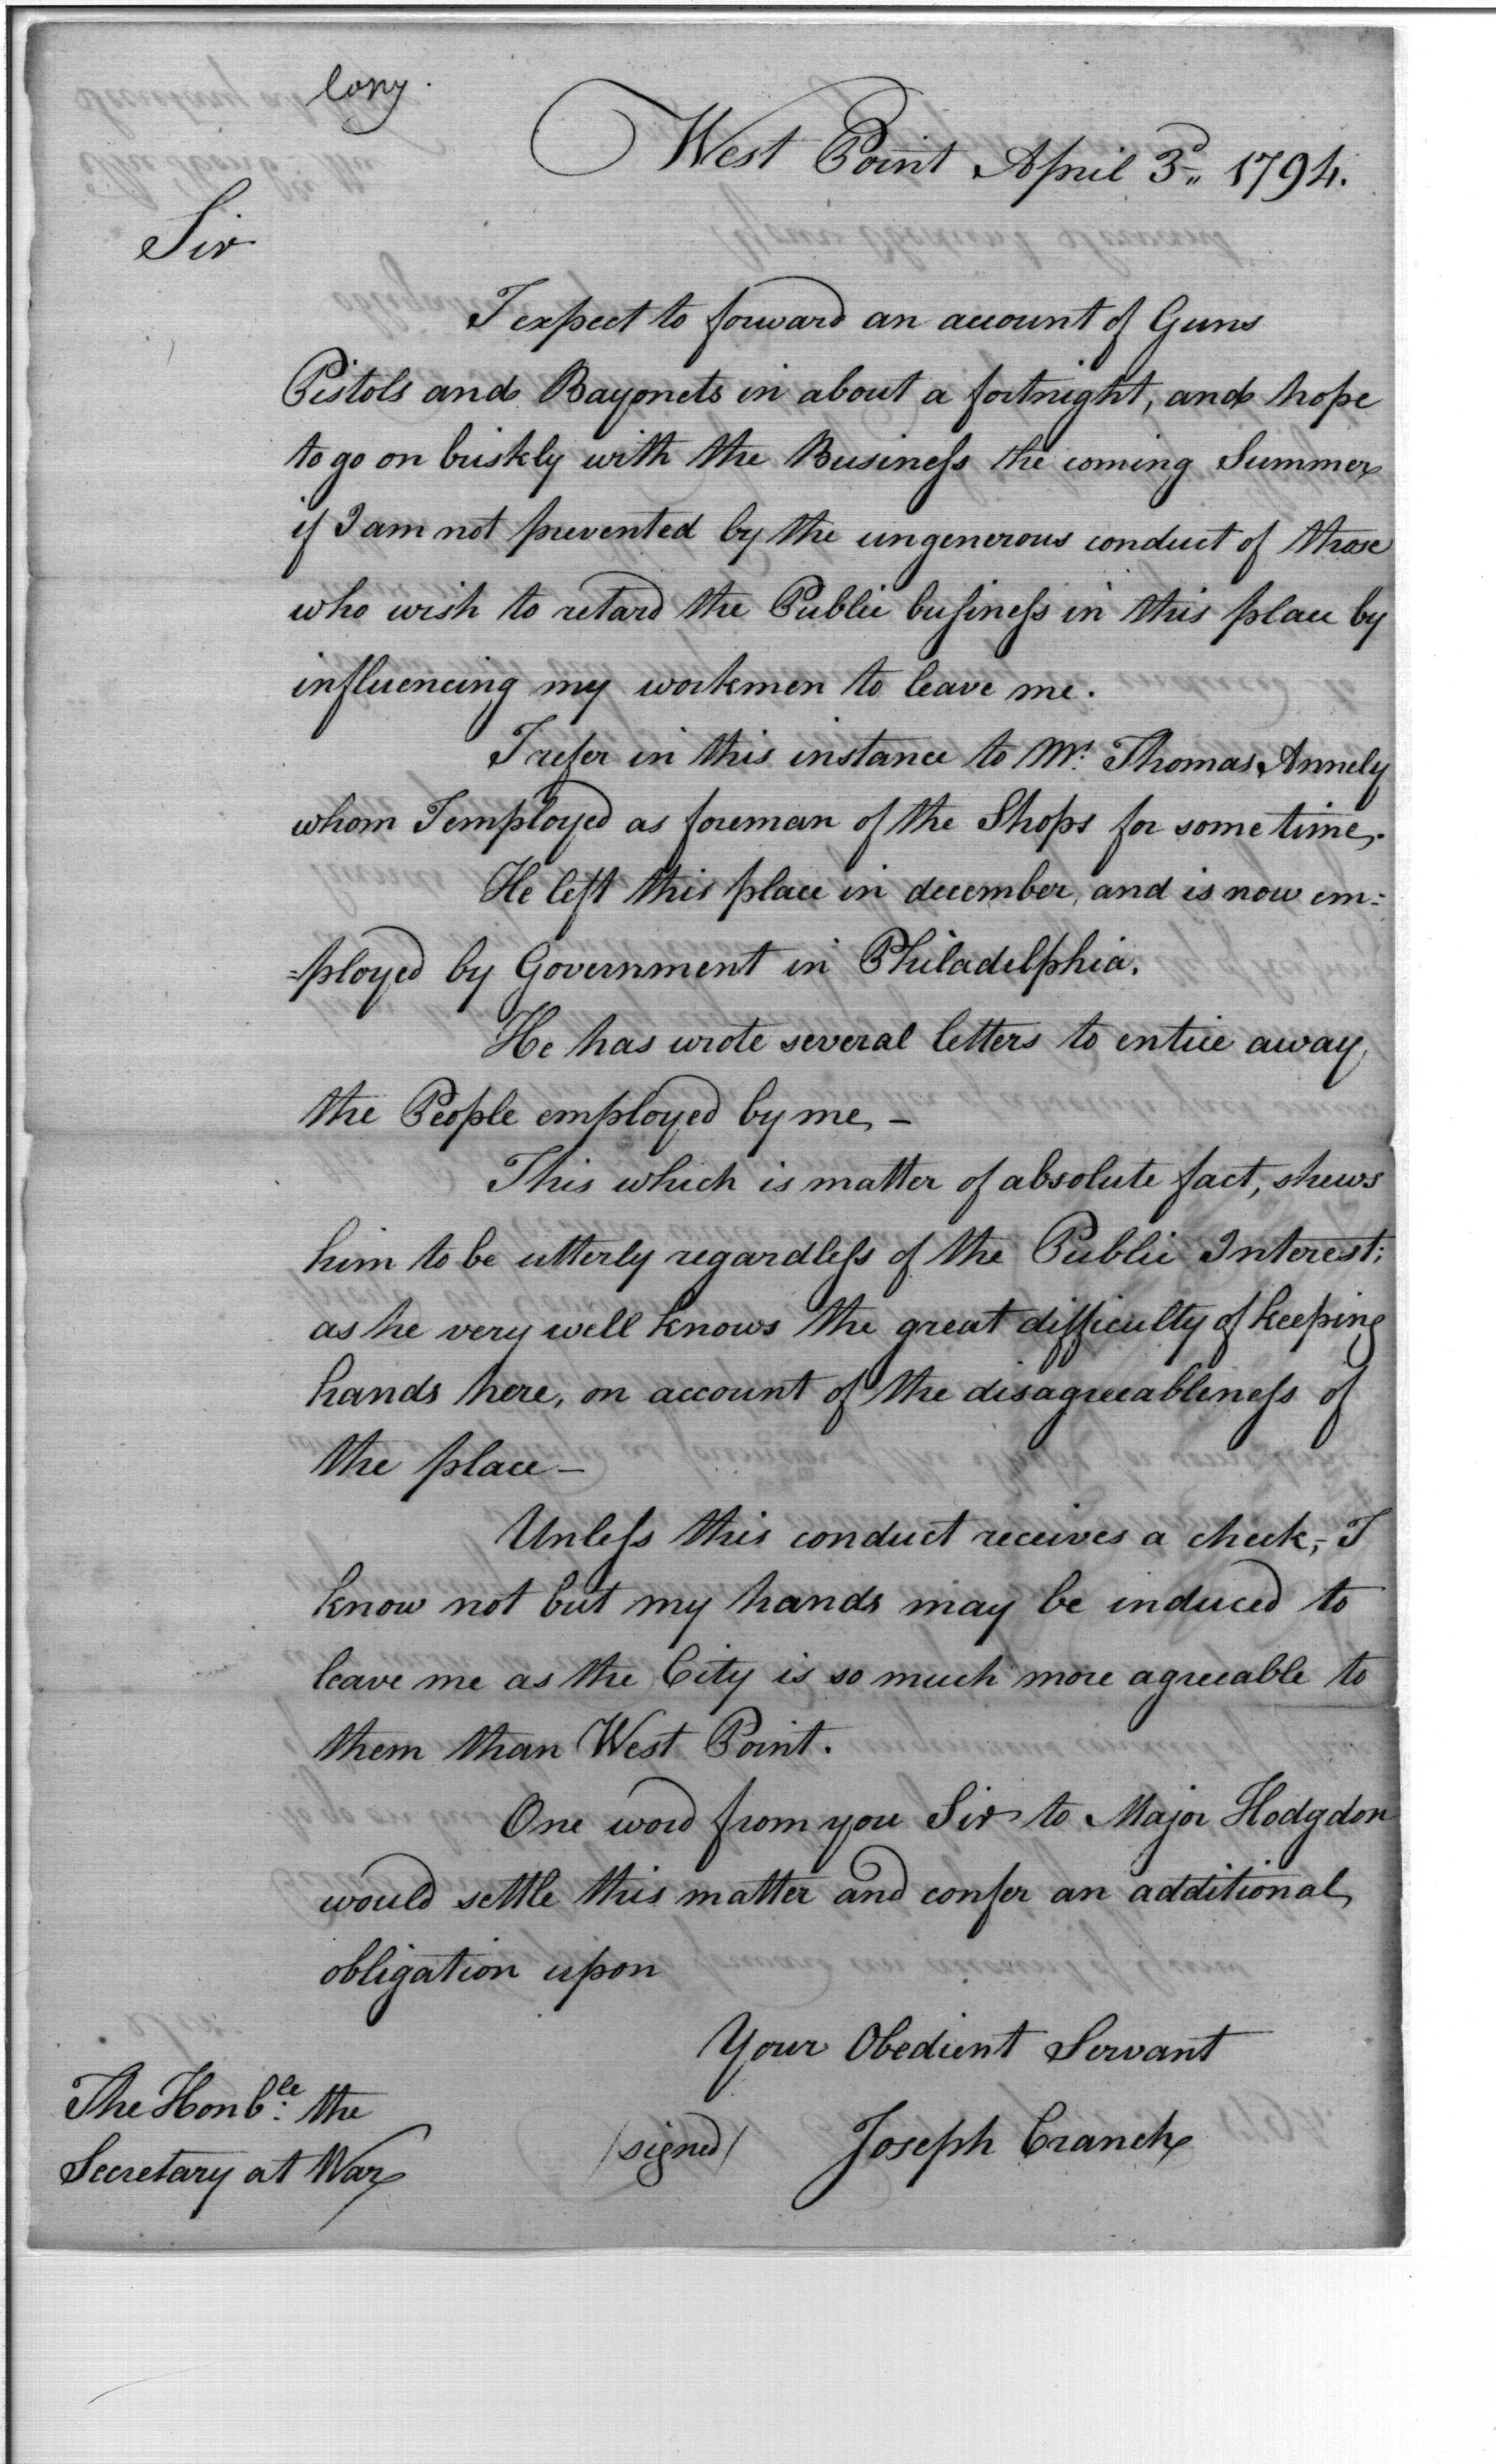 Copy.
West Point April 3d 1794.
Sir
I expect to forward an account of Guns
Pistols and Bayonets in about a fortnight, and hope
to go on briskly with the Business the coming Summer
if I am not prevented by the ungenerous conduct of those
who wish to retard the Public business in this place by
influencing my workmen to leave me.
I refer in this instance to Mr. Thomas Annely
whom I employed as foreman of the Shops for some time.
He left this place in december, and is now em=
=ployed by Government in Philadelphia.
He has wrote several letters to entice away
the People employed by me, -
This which is matter of absolute fact, shews
him to be utterly regardless of the Public Interest;
as he very well knows the great difficulty of keeping
hands here, on account of the disagreeableness of
the place -
Unless this conduct receives a check, - I
know not but my hands may be induced to
leave me as the City is so much more agreeable to
them than West Point.
One word from you Sir to Major Hodgdon
would settle this matter and confer an additional
obligation upon
Your Obedient Servant
/signed/ Joseph Cranch
The Honble: the
Secretary at War